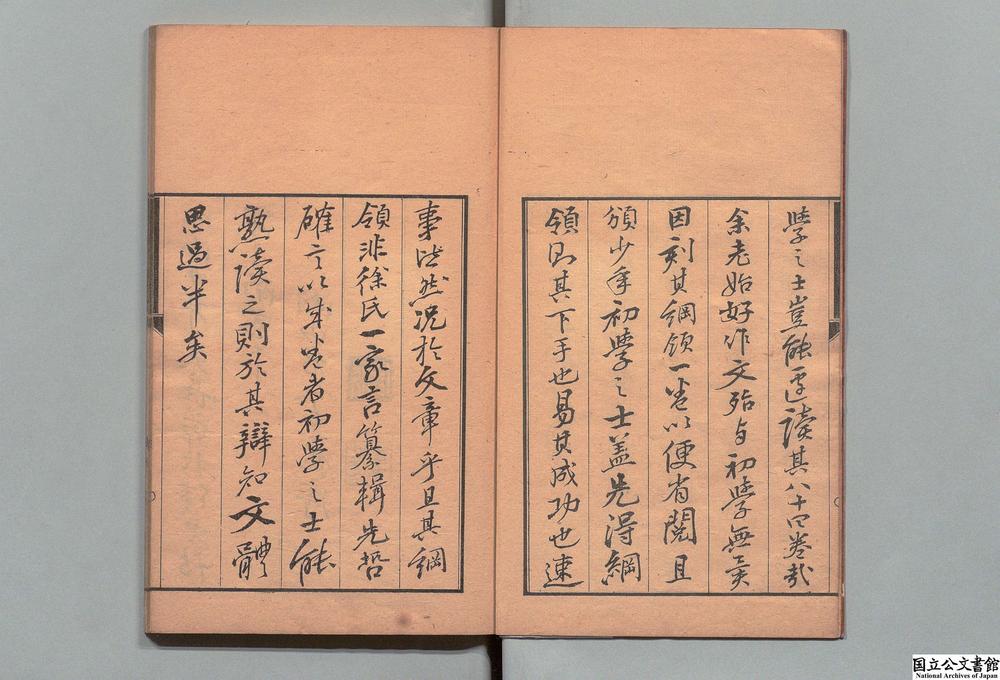 學之士豈能遽讀其八十四卷哉
余老始好作文殆与初學無異
因刻其綱領一卷以便省閱且
頒少年初學之士盖先得綱
領則其下手也易其成功也速
事皆然况於文章乎且其綱
領非徐氏一家言纂輯先哲
確言以成卷者初學之士能
熟讀之則於其辯知文體
思過半矣
国立公文書館
National Archives of Japan